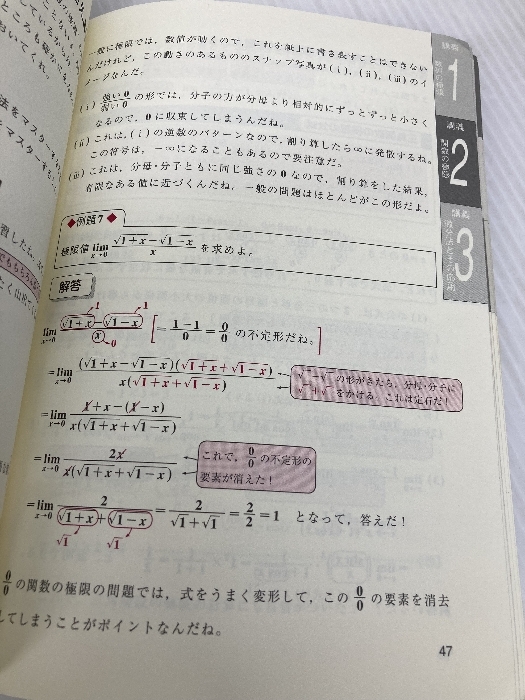 一般に極限では，数値が動くので，これを紙上に書き表すことはできない
んだけれど，この動きのあるもののスナップ写真が(ⅰ)，(ⅱ)，(ⅲ)のイ
メージなんだ。
(ⅰ) 強い0/弱い0 の形では，分子の力が分母より相対的にずっとずっと小さく
なるので，0に収束してしまうんだね。
(ⅱ) これは，(ⅰ)の逆数のパターンなので，割り算したら∞に発散するね。
この符号は，−∞になることもあるので要注意だ。
(ⅲ) これは，分母・分子ともに同じ強さの0なので，割り算をした結果，
有限な値に近づくんだね。一般の問題はほとんどがこの形だよ。
◆例題7◆
極限値 lim x→0 (√1+x − √1−x)/x を求めよ。
解答
lim x→0 (√1+x − √1−x)/x [= (1−1)/0 = 0/0 の不定形だね。]
1 1 0
= lim x→0 (√1+x − √1−x)(√1+x + √1−x)/x(√1+x + √1−x)
√ − √ の形がきたら，分母・分子に
√ + √ をかける。これは定石だ！
= lim x→0 (1+x−(1−x))/x(√1+x + √1−x)
= lim x→0 2x/x(√1+x + √1−x)
これで，0/0 の不定形の
要素が消えた！
= lim x→0 2/(√1+x + √1−x) = 2/(√1+√1) = 2/2 = 1 となって，答えだ！
√1 √1
0/0 の関数の極限の問題では，式をうまく変形して，この 0/0 の要素を消去
してしまうことがポイントなんだね。
47
講義
1
講義
2
関数の極限
講義
3